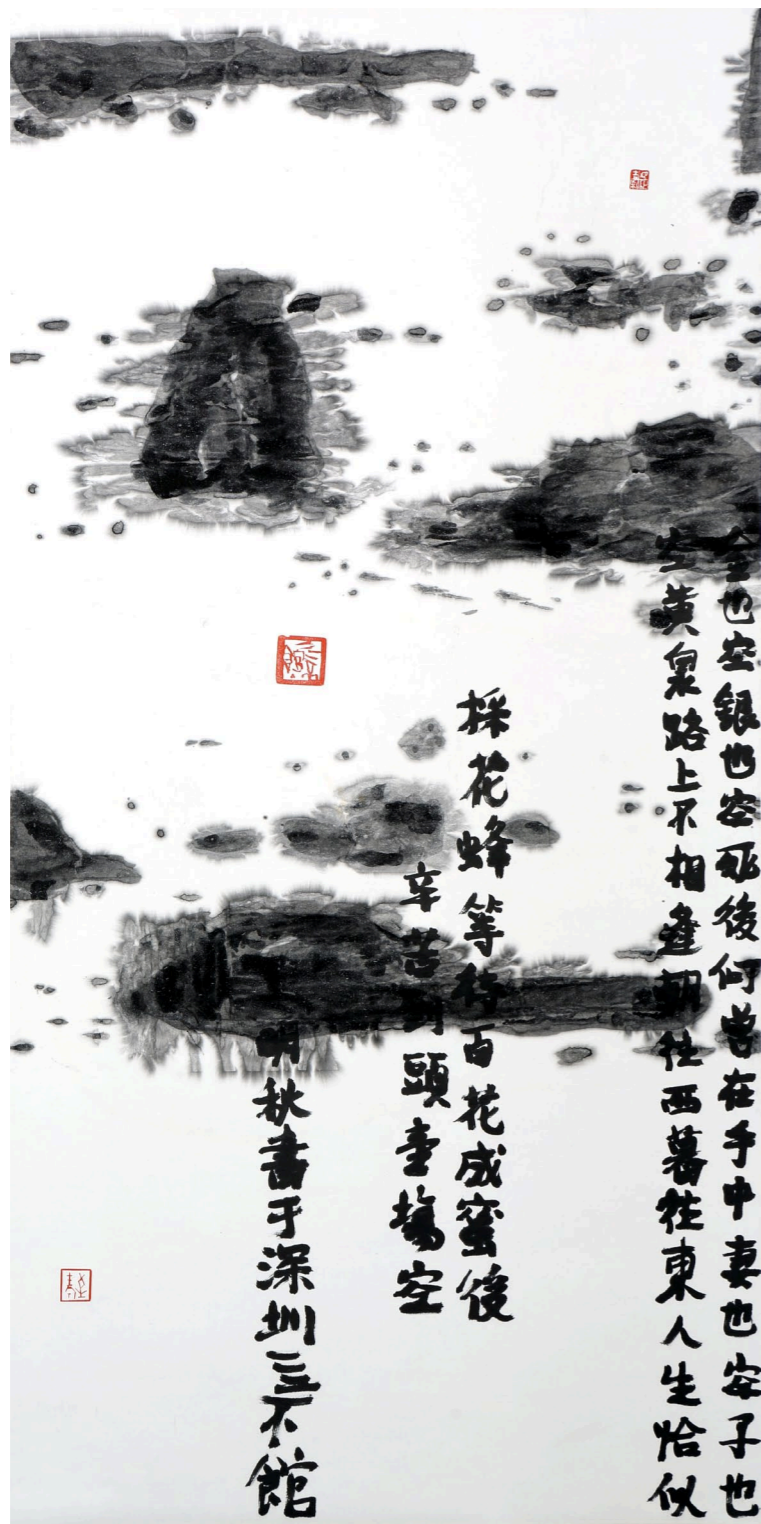 金也空銀也空死後何曾在手中妻也空子也
空黃泉路上不相逢朝往西暮往東人生恰似
採花蜂等待百花成蜜後
辛苦到頭壹場空
明秋書于深圳三不館